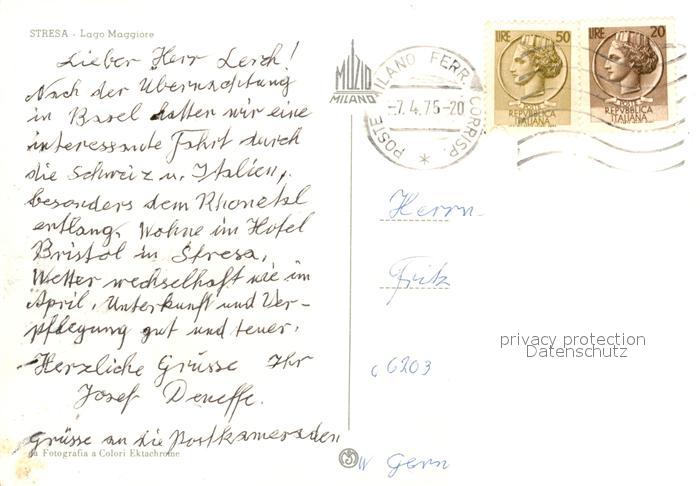 STRESA - Lago Maggiore
Lieber Herr Lerch!
Nach der Übernachtung
in Basel hatten wir eine
interessante Fahrt durch
die Schweiz u. Italien,
besonders dem Rhonetal
entlang. Wohne im Hotel
Bristol in Stresa,
Wetter wechselhaft wie im
April, Unterkunft und Ver-
pflegung gut und teuer.
Herzliche Grüsse Ihr
Josef Deneffe.
Grüsse an die Postkameraden
Fotografia a Colori Ektachrome
MUZIO
MILANO
POSTE MILANO FERR. CORRISP.
-7.4.75-20
LIRE 50
POSTE
REPVBBLICA
ITALIANA
LIRE 20
POSTE
REPVBBLICA
ITALIANA
Herrn
Fritz
privacy protection
Datenschutz
6203
Gern